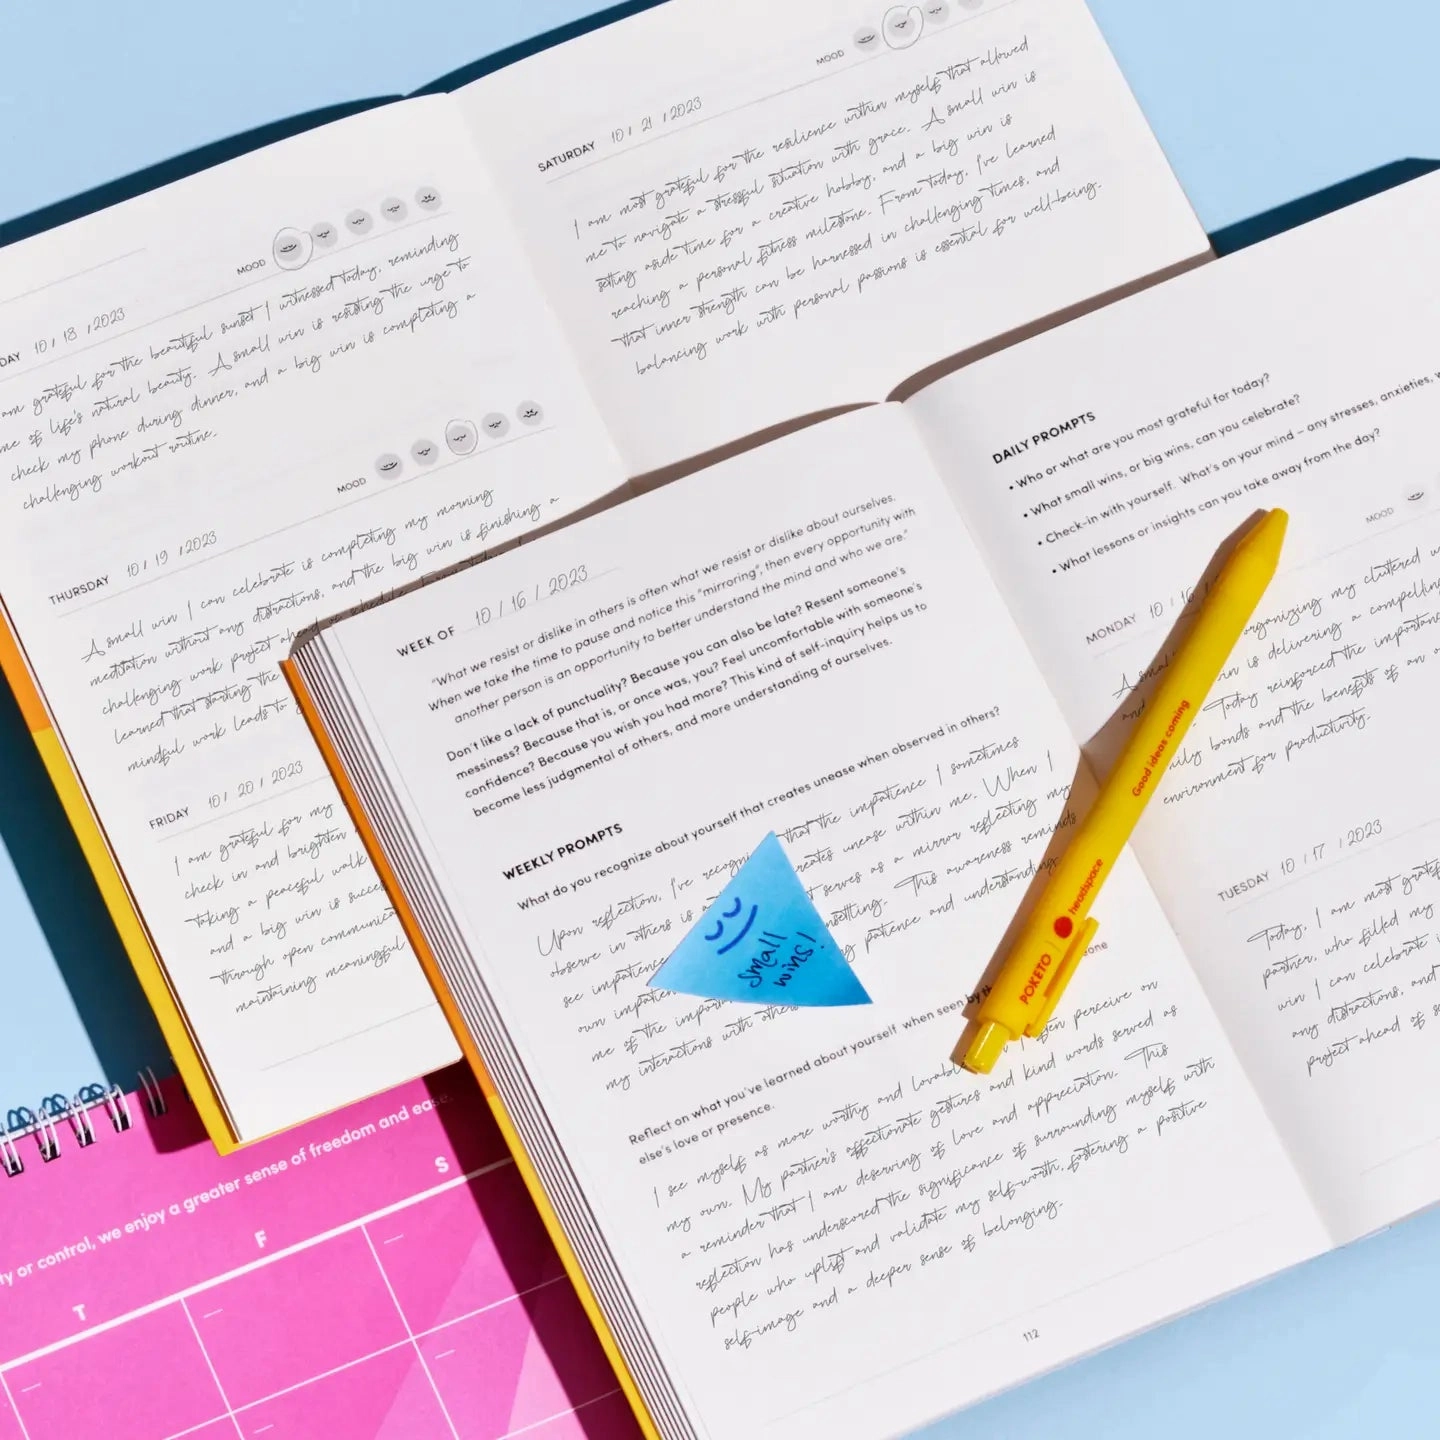 DAY 10 / 18 / 2023
MOOD
am grateful for the beautiful sunset I witnessed today, reminding
me of life's natural beauty. A small win is resisting the urge to
check my phone during dinner, and a big win is completing a
challenging workout routine.
THURSDAY 10 / 19 / 2023
MOOD
A small win I can celebrate is completing my morning
meditation without any distractions, and the big win is finishing a
challenging work project ahead of schedule.
learned that starting the
mindful work leads to
FRIDAY 10 / 20 / 2023
I am grateful for my
check in and brighten
taking a peaceful walk
and a big win is
through open
maintaining meaningful
SATURDAY 10 / 21 / 2023
MOOD
I am most grateful for the resilience within myself that allowed
me to navigate a stressful situation with grace. A small win is
setting aside time for a creative hobby, and a big win is
reaching a personal fitness milestone. From today, I've learned
that inner strength can be harnessed in challenging times, and
balancing work with personal passions is essential for well-being.
WEEK OF 10 / 16 / 2023
"What we resist or dislike in others is often what we resist or dislike about ourselves.
When we take the time to pause and notice this "mirroring", then every opportunity with
another person is an opportunity to better understand the mind and who we are."
Don't like a lack of punctuality? Because you can also be late? Resent someone's
messiness? Because that is, or once was, you? Feel uncomfortable with someone's
confidence? Because you wish you had more? This kind of self-inquiry helps us to
become less judgmental of others, and more understanding of ourselves.
WEEKLY PROMPTS
What do you recognize about yourself that creates unease when observed in others?
Upon reflection, I've that the impatience I sometimes
observe in others is a creates unease within me. When I
see impatience serves as a mirror reflecting my
own This awareness reminds
me of the patience and understanding
my interactions with
small
wins!
Reflect on what you've learned about yourself when seen by
else's love or presence.
I see myself as more worthy and I often perceive on
my own. My partner's affectionate gestures and kind words served as
a reminder that I am deserving of love and appreciation. This
reflection has underscored the significance of surrounding myself with
people who uplift and validate my self-worth, fostering a positive
self-image and a deeper sense of belonging.
112
DAILY PROMPTS
• Who or what are you most grateful for today?
• What small wins, or big wins, can you celebrate?
• Check-in with yourself. What's on your mind – any stresses, anxieties,
• What lessons or insights can you take away from the day?
MOOD
MONDAY 10 / 16
A organizing my cluttered
and win is delivering a
Today reinforced the
bonds and the benefits of an
environment for productivity.
TUESDAY 10 / 17 / 2023
Today, I am most
partner, who filled my
win I can celebrate
any distractions, and
project ahead of
Good ideas coming
POKETO | headspace
or control, we enjoy a greater sense of freedom and ease.
T F S